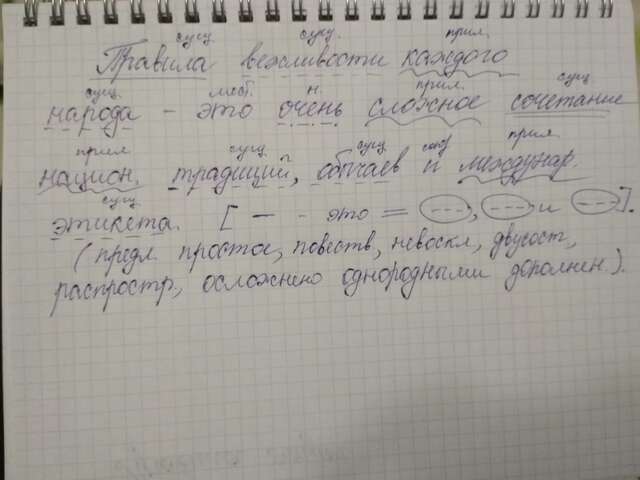 сущ. сущ. прил.
Правила вежливости каждого
сущ. мест. н. прил. сущ.
народа - это очень сложное сочетание
прил. сущ. сущ. союз прил.
национ. традиций, обычаев и междунар.
сущ.
этикета. [ — - это = (---), (---) и (---)].
(предл. простое, повеств, невоскл, двусост,
распростр, осложнено однородными дополнен.).